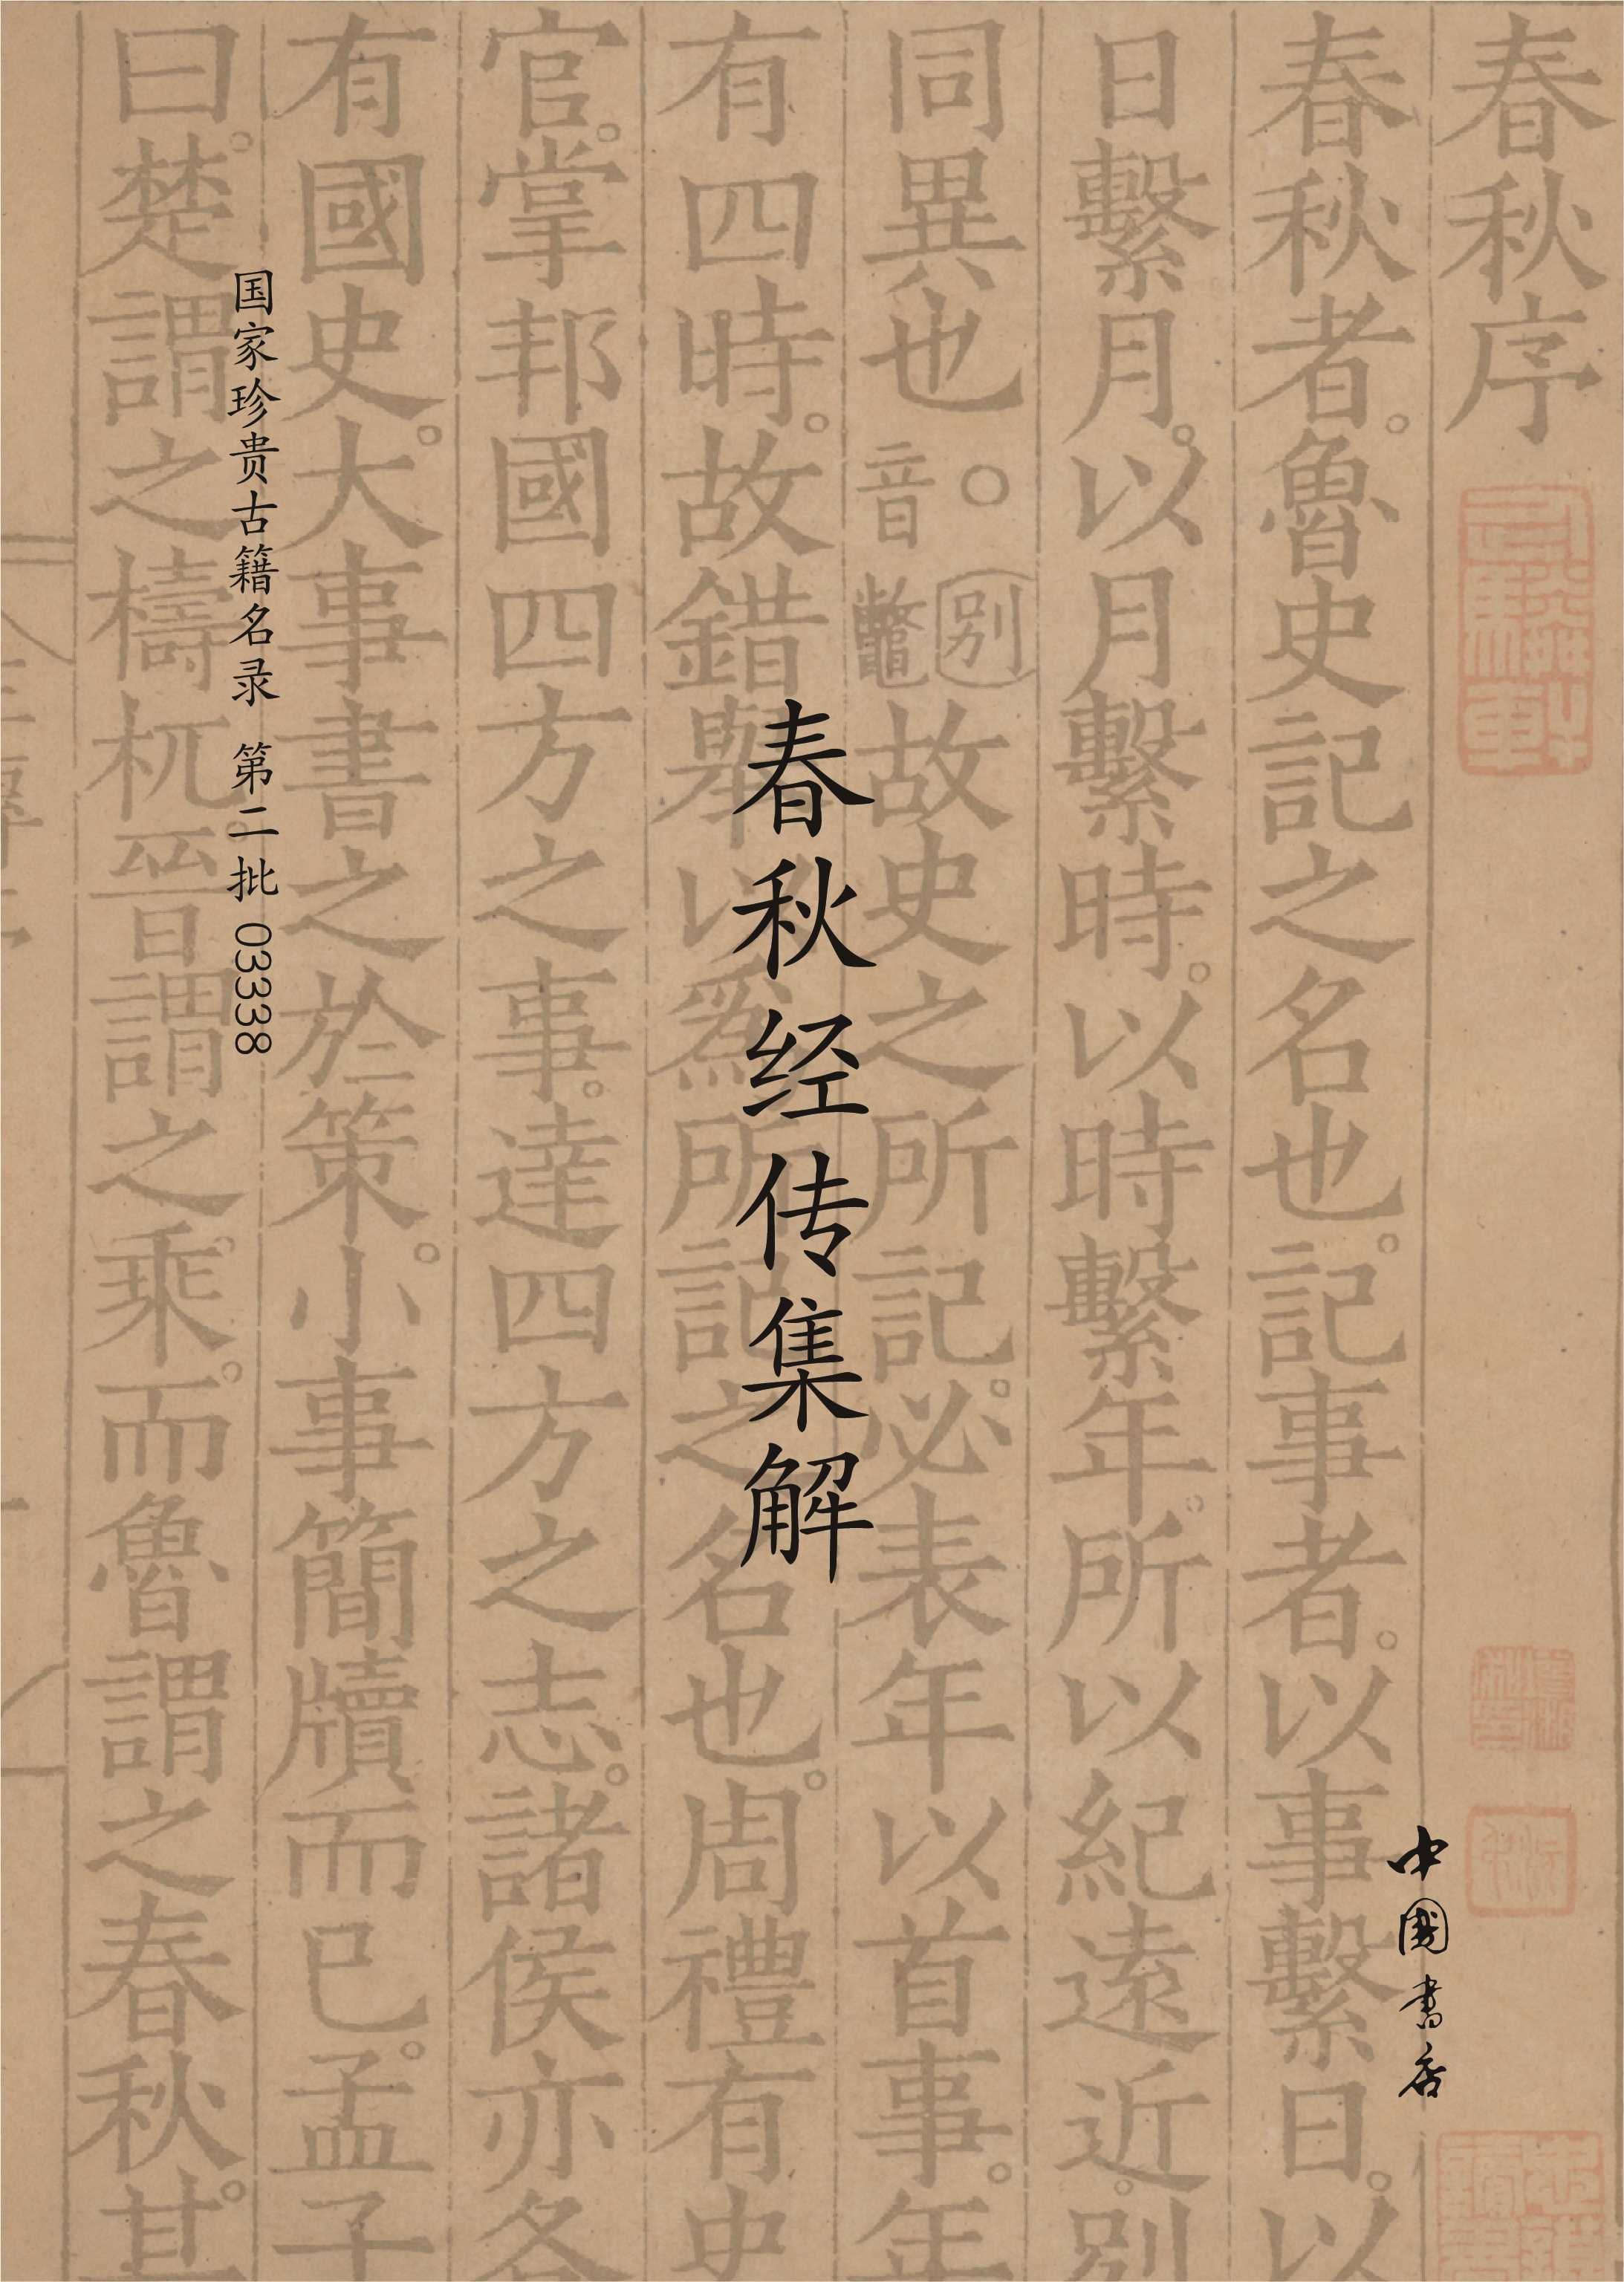 春秋序
春秋者。魯史記之名也。記事者。以事繫日。以
日繫月。以月繫時。以時繫年。所以紀遠近。別
同異也。○別音鼈故史之所記。必表年以首事。年
有四時。故錯舉以爲所記之名也。周禮有史
官。掌邦國四方之事。達四方之志。諸侯亦各
有國史。大事書之於策。小事簡牘而已。孟子
曰。楚謂之檮杌。晉謂之乘。而魯謂之春秋。其
春秋经传集解
国家珍贵古籍名录 第二批 03338
中國書店